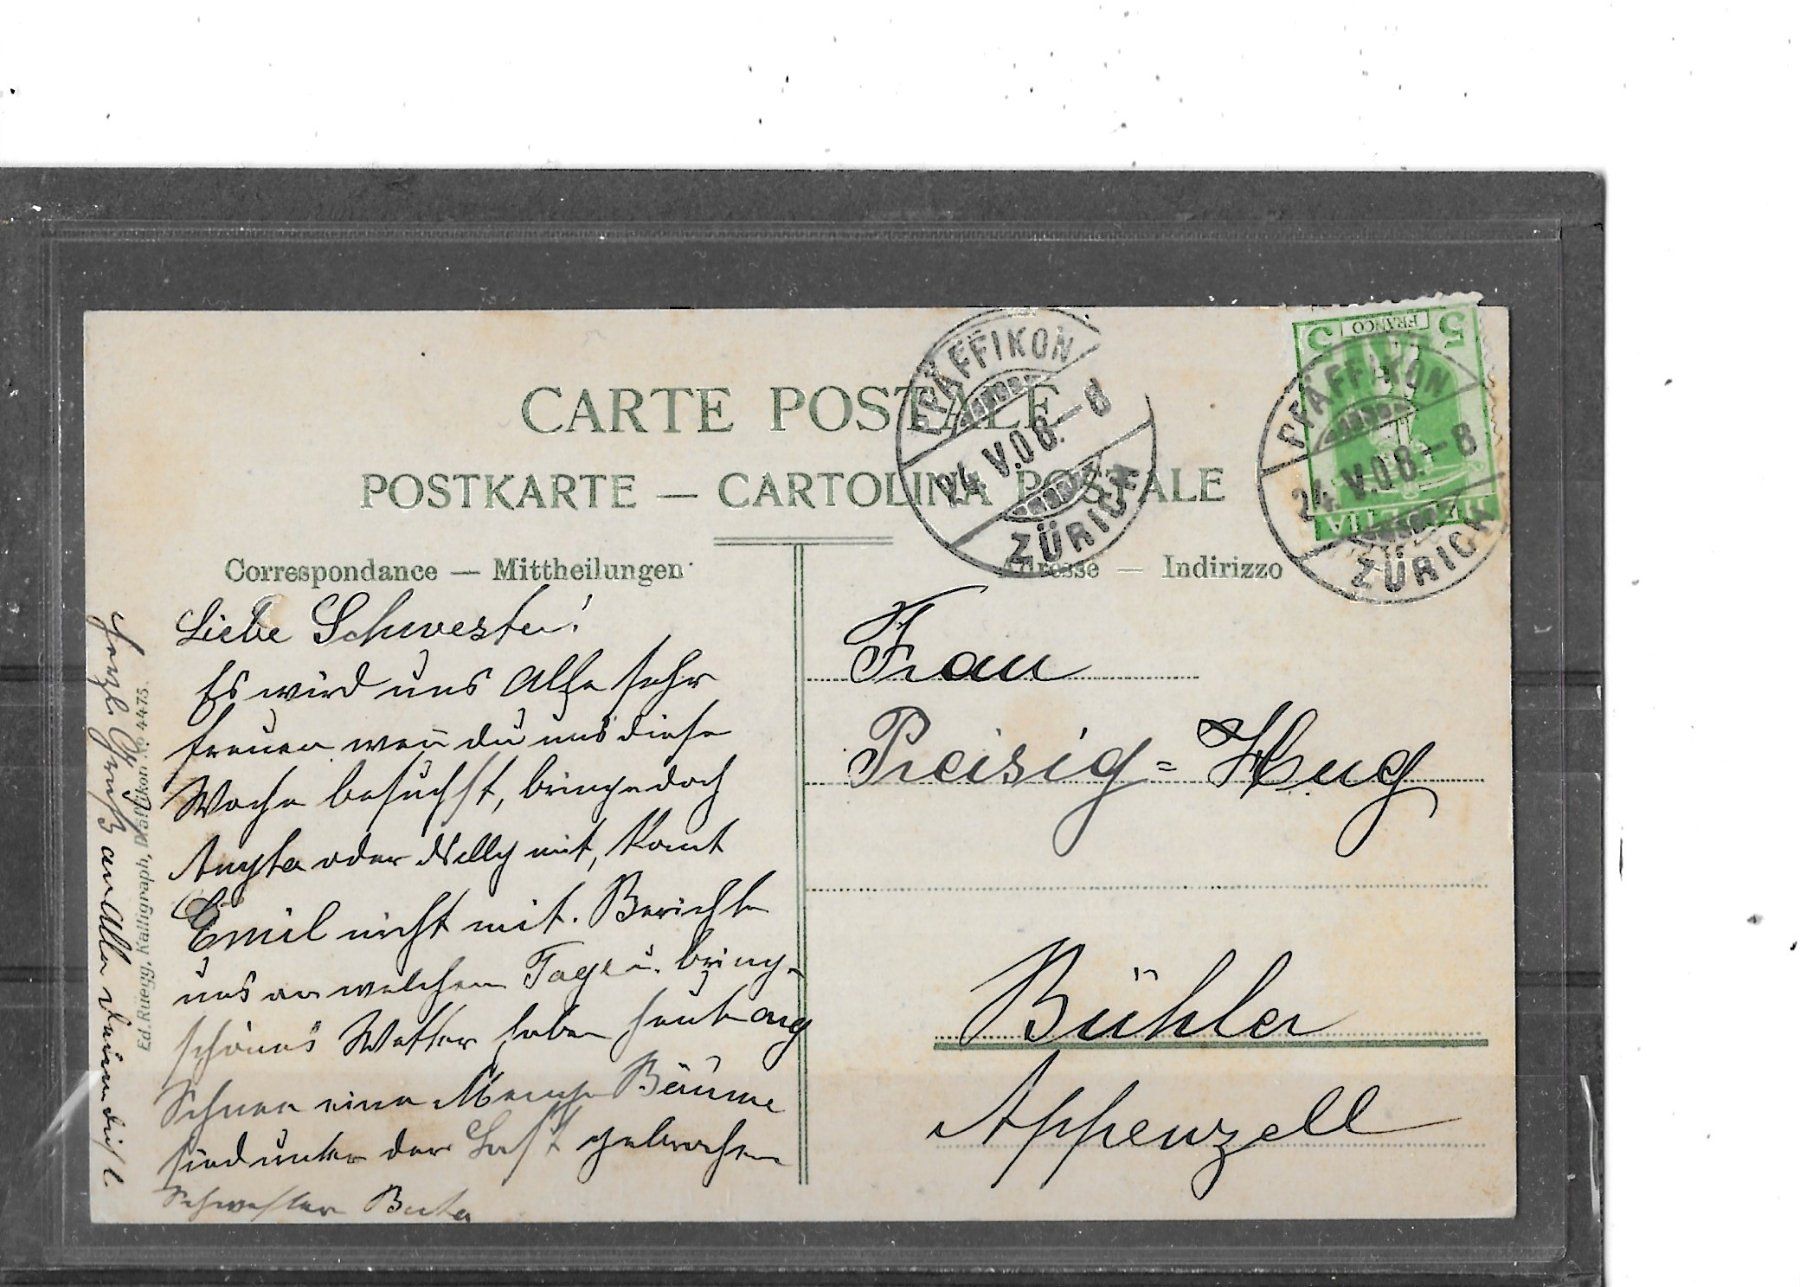 CARTE POSTALE
POSTKARTE — CARTOLINA POSTALE
Correspondance — Mittheilungen
Adresse — Indirizzo
PFÄFFIKON
24.V.08.–8
ZÜRICH
5 FRANCO 5
HELVETIA
PFÄFFIKON
24.V.08.–8
ZÜRICH
Liebe Schwester!
Es wird uns Alle sehr
freuen wen̄ du uns diese
Woche besuchst, bringe doch
oder Nelly mit, komt
Emil nicht mit. Berichte
uns an welchem Tage u. bring
schönes Wetter, haben heute arg
Schnee eine Menge Bäume
sind unter der Last gebrochen
Schwester
Herzl. Grüße an Alle
Ed. Rüegg, Kalligraph, Pfäffikon. No 4473.
Frau
Preisig=Hug
Bühler
Appenzell